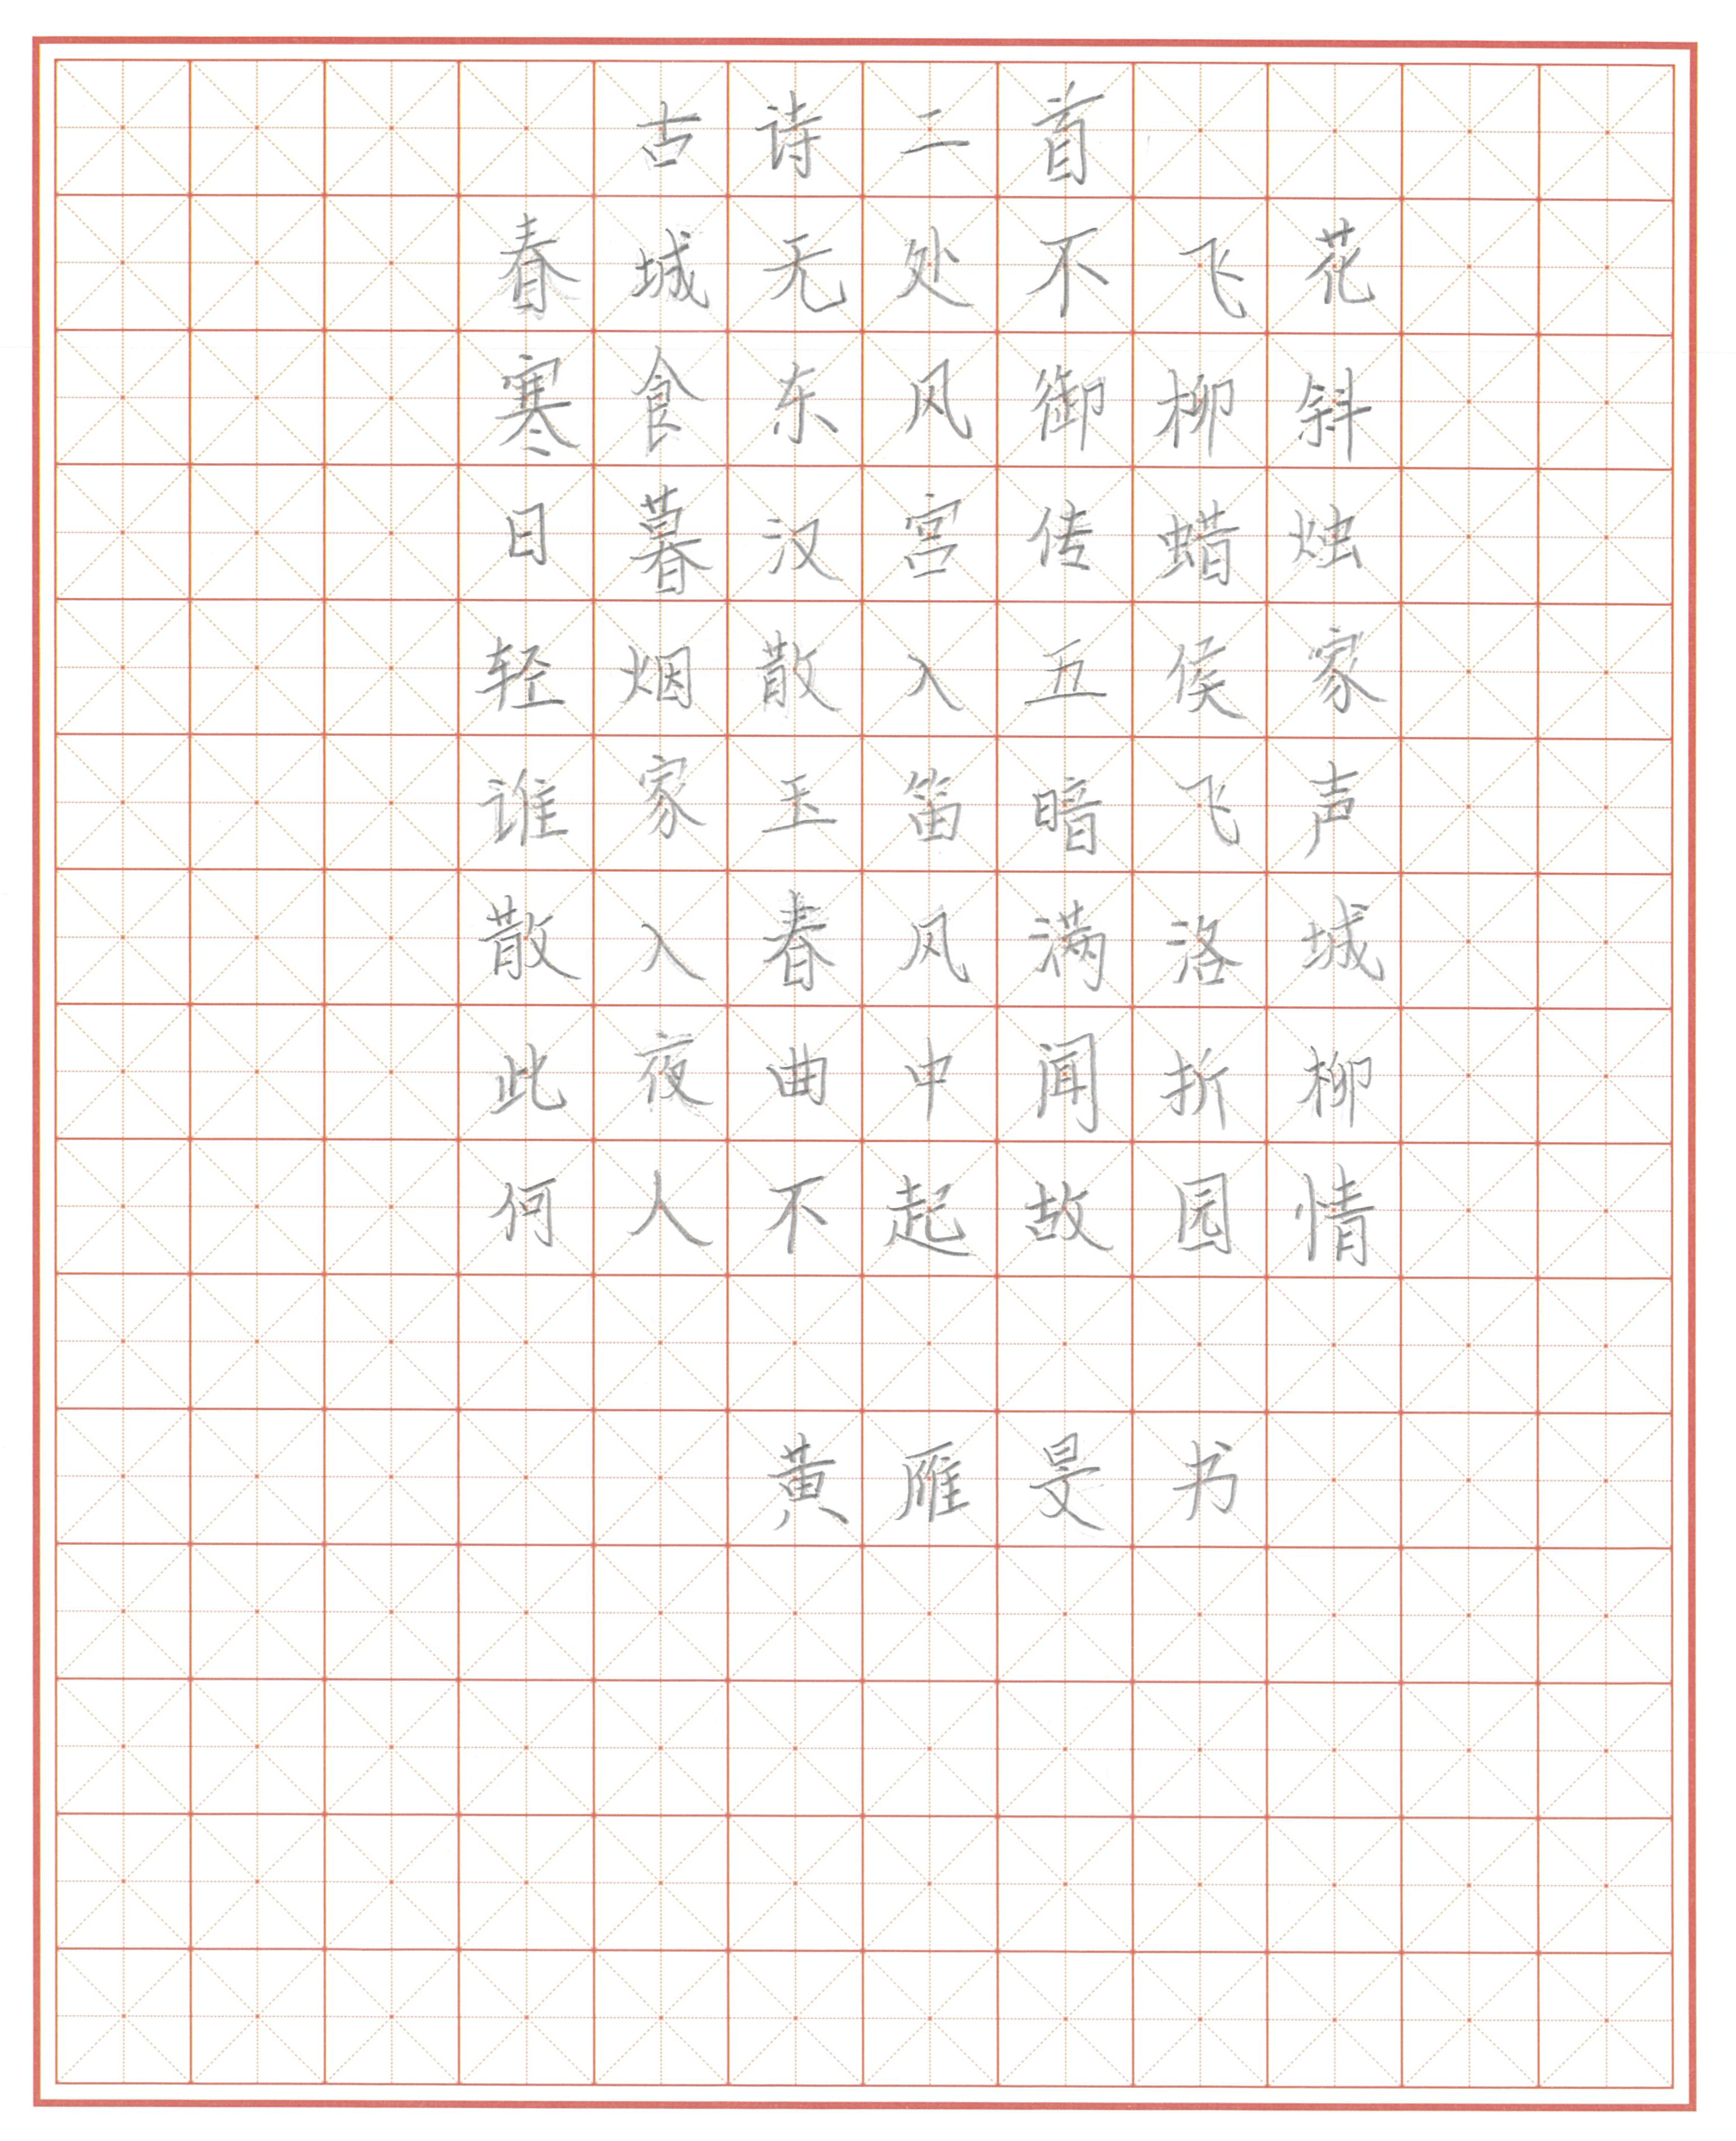 古诗二首
春城无处不飞花
寒食东风御柳斜
日暮汉宫传蜡烛
轻烟散入五侯家
谁家玉笛暗飞声
散入春风满洛城
此夜曲中闻折柳
何人不起故园情
黄雁旻书